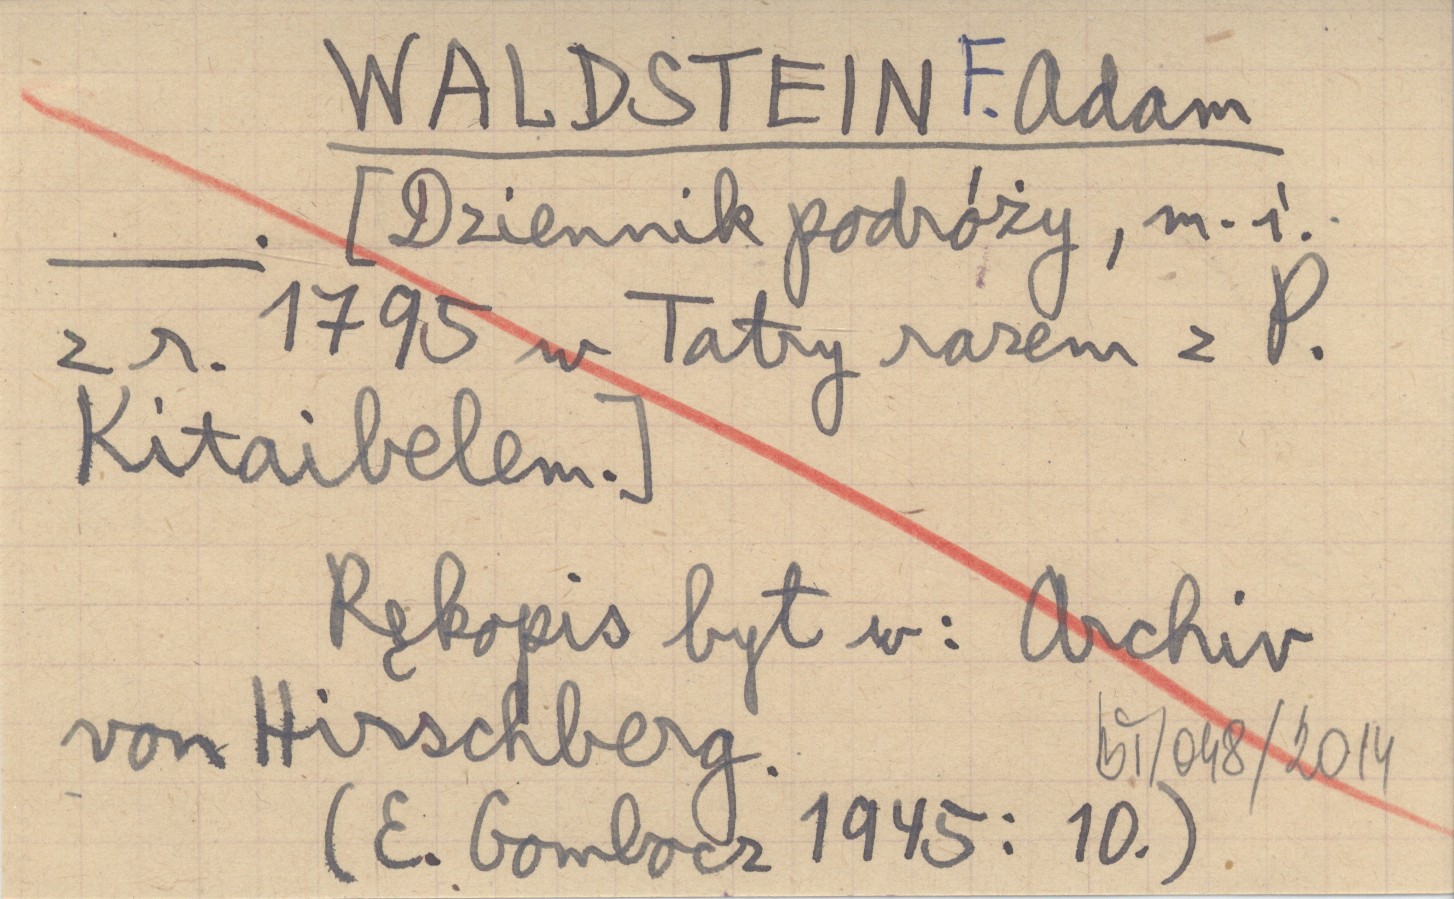 WALDSTEIN F. Adam
. [Dziennik podróży, m. i.
z r. 1795 w Tatry razem z P.
Kitaibelem.]
Rękopis był w: Archiv
von Hirschberg.
/048/2014
(E. Gombocz 1945: 10.)